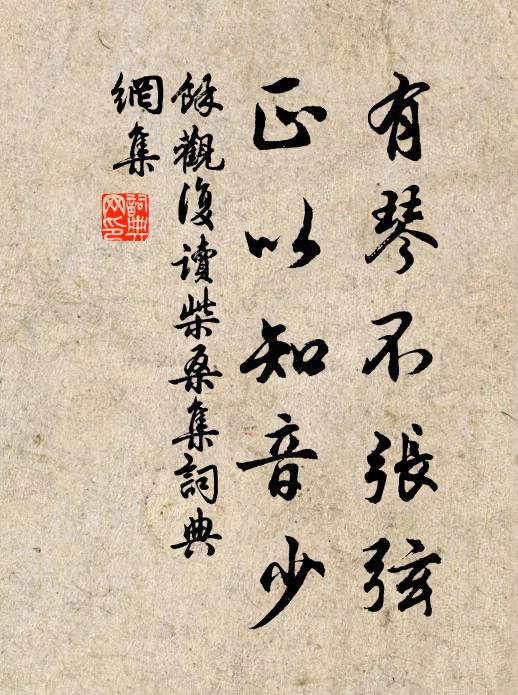 有琴不張弦
正以知音少
餘觀復讀柴桑集詞典
網集
詞典
网印